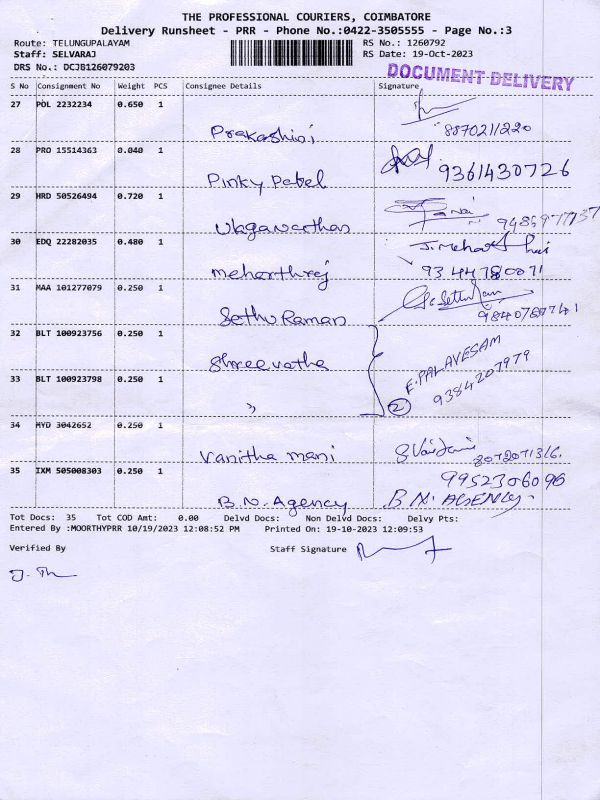 THE PROFESSIONAL COURIERS, COIMBATORE
Delivery Runsheet - PRR - Phone No.:0422-3505555 - Page No.:3
Route: TELUNGUPALAYAM RS No.: 1260792
Staff: SELVARAJ RS Date: 19-Oct-2023
DRS No.: DCJB126079203
DOCUMENT DELIVERY
S No Consignment No Weight PCS Consignee Details Signature
27 POL 2232234 0.650 1
8870211220
28 PRO 15514363 0.040 1
Pinky Patel 9361430726
29 HRD 50526494 0.720 1
30 EDQ 22282035 0.480 1
meharthraj
31 MAA 101277079 0.250 1
Sethu Raman
32 BLT 100923756 0.250 1
Shreevatha
E. PALAVESAM
9384207979
33 BLT 100923798 0.250 1
" 2
34 MYD 3042652 0.250 1
Vanitha mani
35 IXM 505008303 0.250 1 9952306096
B.N. Agency B.N. AGENCY.
Tot Docs: 35 Tot COD Amt: 0.00 Delvd Docs: Non Delvd Docs: Delvy Pts:
Entered By :MOORTHYPRR 10/19/2023 12:08:52 PM Printed On: 19-10-2023 12:09:53
Verified By Staff Signature